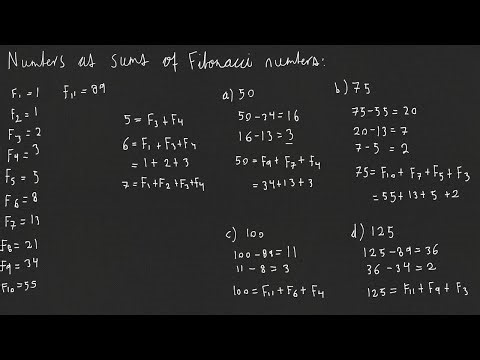 Numbers as sums of Fibonacci numbers:
F₁ = 1
F₂ = 1
F₃ = 2
F₄ = 3
F₅ = 5
F₆ = 8
F₇ = 13
F₈ = 21
F₉ = 34
F₁₀ = 55
F₁₁ = 89
5 = F₃ + F₄
6 = F₁ + F₃ + F₄
= 1 + 2 + 3
7 = F₁ + F₂ + F₃ + F₄
a) 50
50 - 34 = 16
16 - 13 = 3
50 = F₉ + F₇ + F₄
= 34 + 13 + 3
b) 75
75 - 55 = 20
20 - 13 = 7
7 - 5 = 2
75 = F₁₀ + F₇ + F₅ + F₃
= 55 + 13 + 5 + 2
c) 100
100 - 89 = 11
11 - 8 = 3
100 = F₁₁ + F₆ + F₄
d) 125
125 - 89 = 36
36 - 34 = 2
125 = F₁₁ + F₉ + F₃